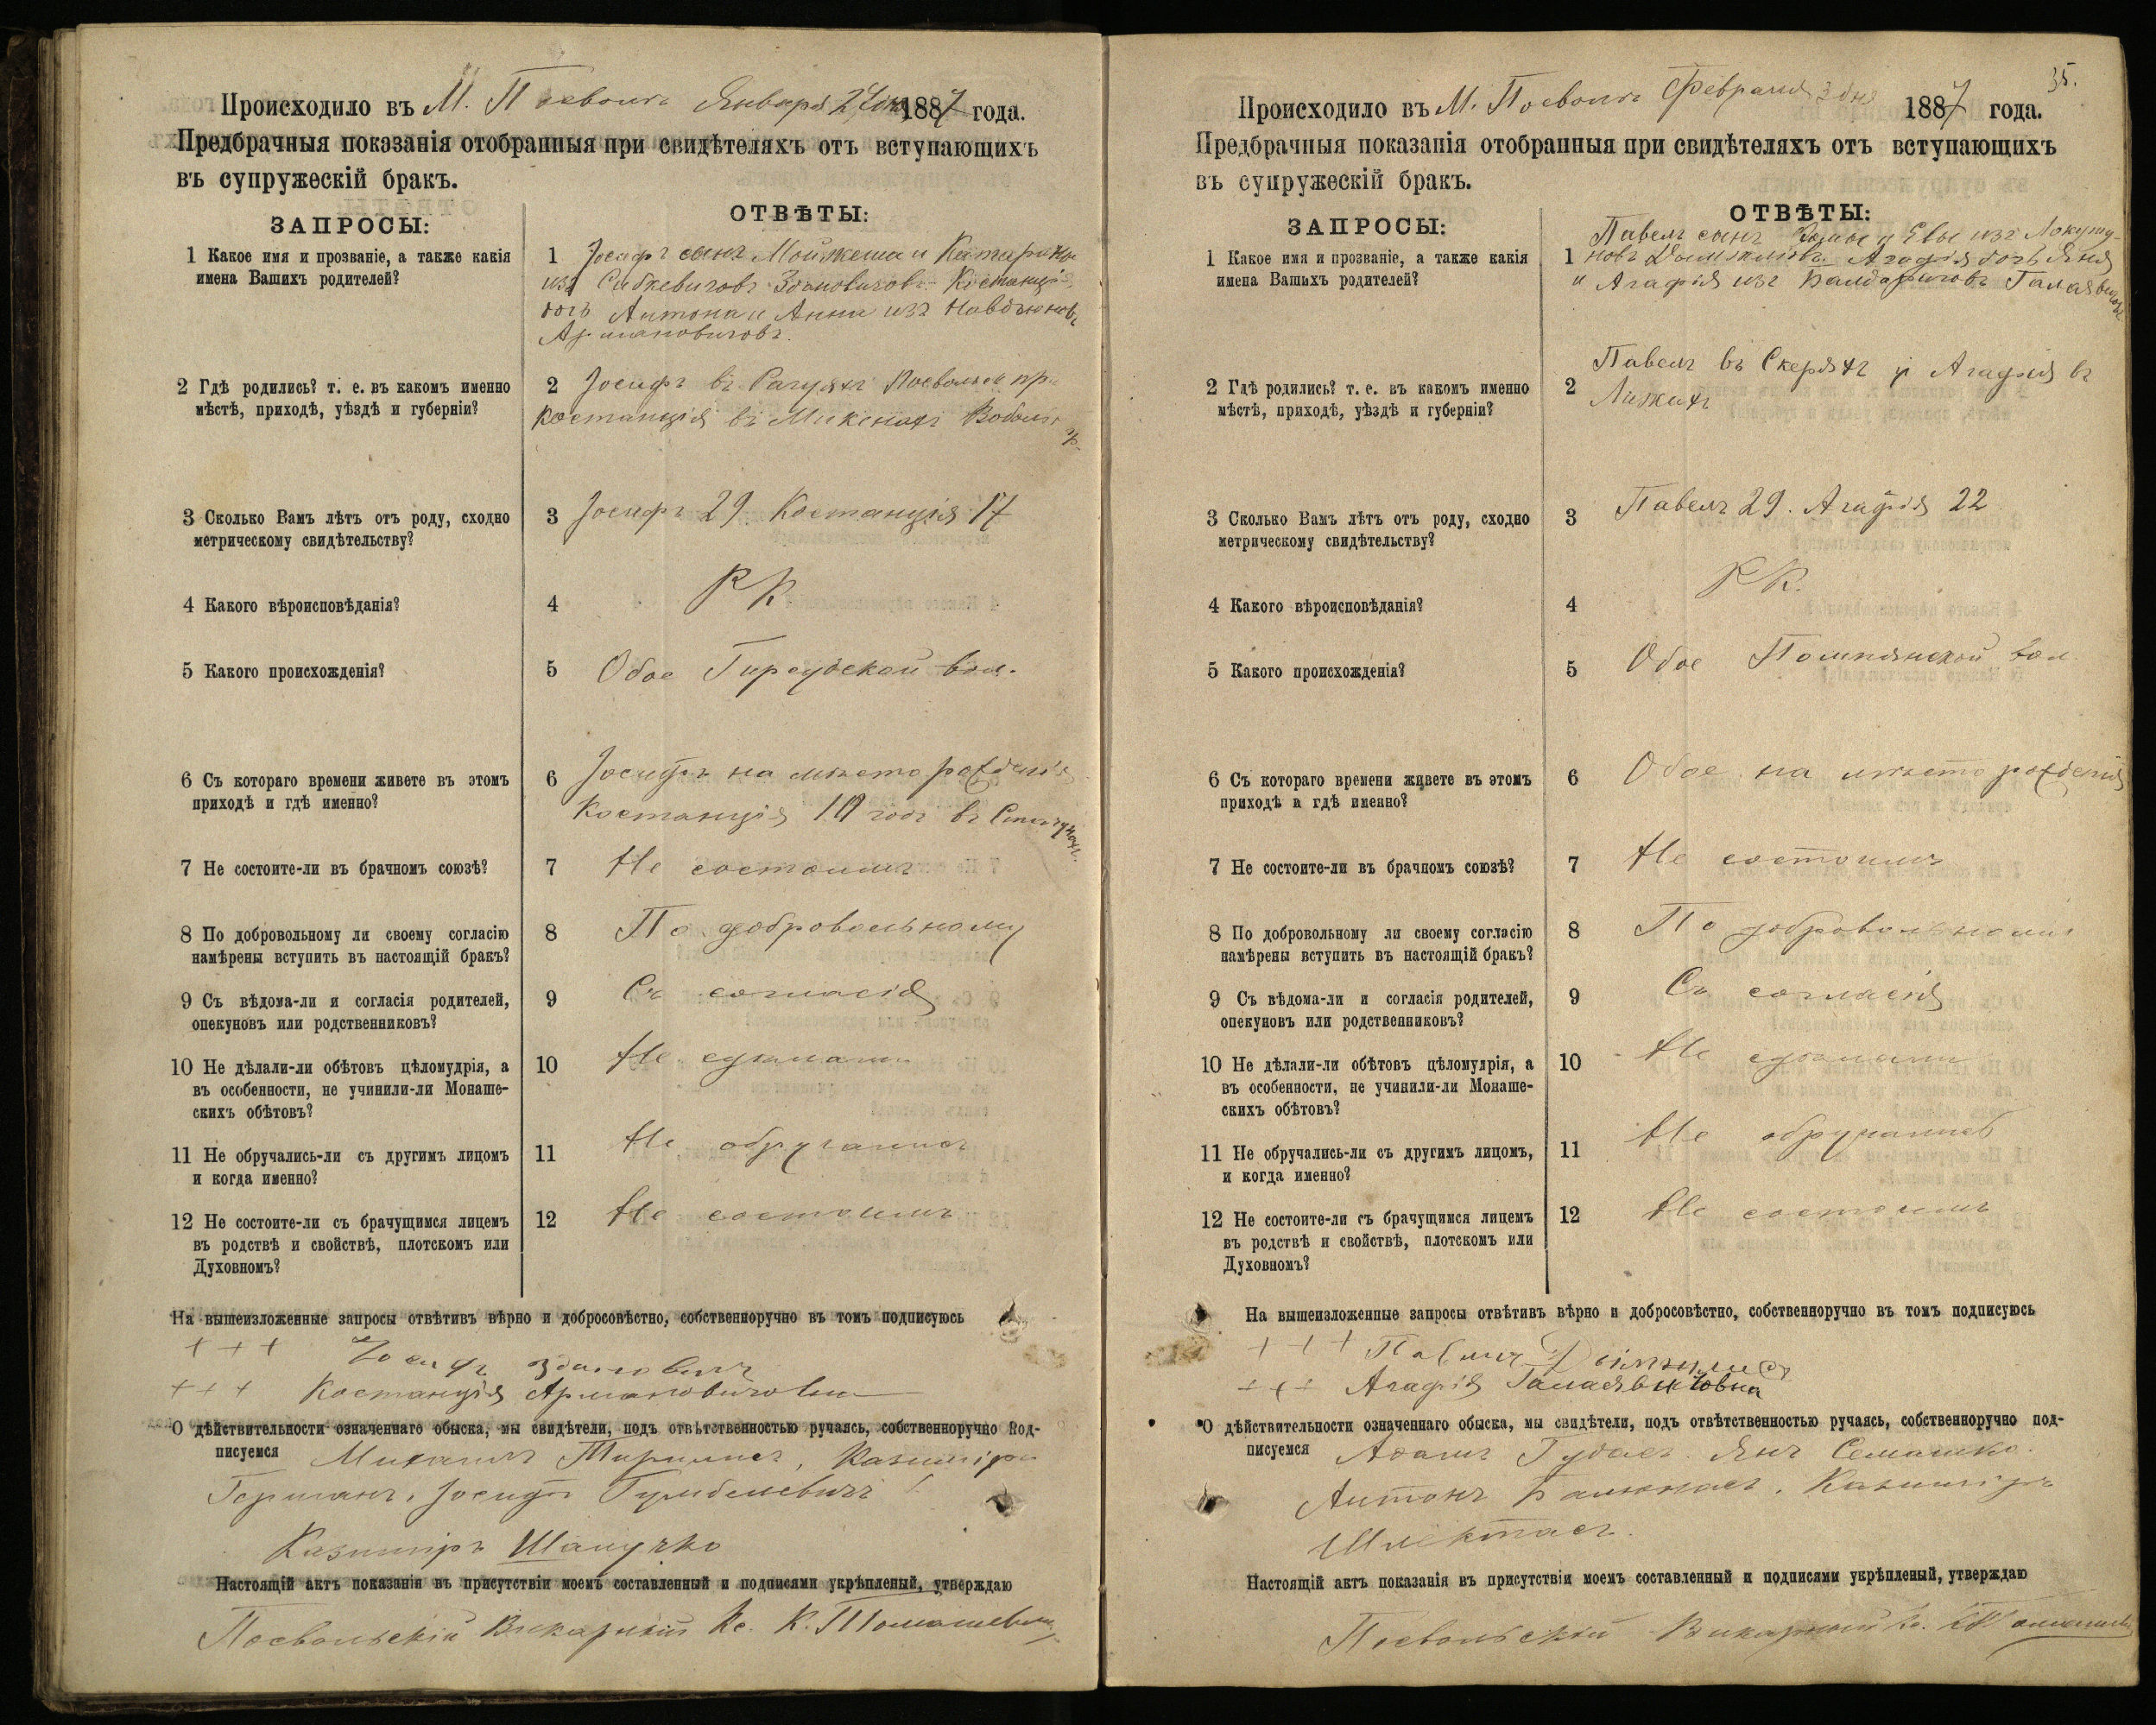 Происходило въ М. Поеволь Января 24 дня 1887 года.
Предбрачныя показанія отобранныя при свидѣтеляхъ отъ вступающихъ
въ супружескій бракъ.
ЗАПРОСЫ:
ОТВѢТЫ:
1 Какое имя и прозваніе, а также какія
имена Вашихъ родителей?
1 Іосифъ сынъ Мойжеша и Катарины
изъ Здановичовъ Костанція
дочь Антона и Анны изъ
Армановичовъ.
2 Гдѣ родились? т. е. въ какомъ именно
мѣстѣ, приходѣ, уѣздѣ и губерніи?
2 Іосифъ въ Поевольск пр.
Костанція въ
3 Сколько Вамъ лѣтъ отъ роду, сходно
метрическому свидѣтельству?
3 Іосифъ 29 Костанція 17
4 Какого вѣроисповѣданія?
4 РК
5 Какого происхожденія?
5 Обое вол.
6 Съ котораго времени живете въ этомъ
приходѣ и гдѣ именно?
6 Іосифъ на мѣсто рожденія
Костанція 10 годъ въ
7 Не состоите-ли въ брачномъ союзѣ?
7 Не состоимъ
8 По добровольному ли своему согласію
намѣрены вступить въ настоящій бракъ?
8 По добровольному
9 Съ вѣдома-ли и согласія родителей,
опекуновъ или родственниковъ?
9 Съ согласія
10 Не дѣлали-ли обѣтовъ цѣломудрія, а
въ особенности, не учинили-ли Монаше-
скихъ обѣтовъ?
10 Не сдѣлали
11 Не обручались-ли съ другимъ лицомъ
и когда именно?
11 Не обручались
12 Не состоите-ли съ брачущимся лицемъ
въ родствѣ и свойствѣ, плотскомъ или
Духовномъ?
12 Не состоимъ
На вышеизложенные запросы отвѣтивъ вѣрно и добросовѣстно, собственноручно въ томъ подписуюсь
+++ Іосифъ Здановичъ
+++ Костанція Армановичовна
О дѣйствительности означеннаго обыска, мы свидѣтели, подъ отвѣтственностью ручаясь, собственноручно под-
писуемся Михаилъ Казиміръ
Германъ, Іосифъ Гумбелевичъ
Казиміръ
Настоящій актъ показанія въ присутствіи моемъ составленный и подписями укрѣпленый, утверждаю
Поевольскій Викарный Кс. К. Томашевичъ
35.
Происходило въ М. Поеволь Февраля 3 дня 1887 года.
Предбрачныя показанія отобранныя при свидѣтеляхъ отъ вступающихъ
въ супружескій бракъ.
ЗАПРОСЫ:
ОТВѢТЫ:
1 Какое имя и прозваніе, а также какія
имена Вашихъ родителей?
Павелъ сынъ и Евы изъ
1 Агафія дочь Яна
и Агафія изъ
2 Гдѣ родились? т. е. въ какомъ именно
мѣстѣ, приходѣ, уѣздѣ и губерніи?
Павелъ въ и Агафія въ
2
3 Сколько Вамъ лѣтъ отъ роду, сходно
метрическому свидѣтельству?
3 Павелъ 29. Агафія 22
4 Какого вѣроисповѣданія?
4 РК.
5 Какого происхожденія?
5 Обое Помпянской вол
6 Съ котораго времени живете въ этомъ
приходѣ и гдѣ именно?
6 Обое на мѣсто рожденія
7 Не состоите-ли въ брачномъ союзѣ?
7 Не состоимъ
8 По добровольному ли своему согласію
намѣрены вступить въ настоящій бракъ?
8 По добровольному
9 Съ вѣдома-ли и согласія родителей,
опекуновъ или родственниковъ?
9 Съ согласія
10 Не дѣлали-ли обѣтовъ цѣломудрія, а
въ особенности, не учинили-ли Монаше-
скихъ обѣтовъ?
10 Не сдѣлали
11 Не обручались-ли съ другимъ лицомъ,
и когда именно?
11 Не обручались
12 Не состоите-ли съ брачущимся лицемъ
въ родствѣ и свойствѣ, плотскомъ или
Духовномъ?
12 Не состоимъ
На вышеизложенные запросы отвѣтивъ вѣрно и добросовѣстно, собственноручно въ томъ подписуюсь
+++ Павелъ
+++ Агафія
О дѣйствительности означеннаго обыска, мы свидѣтели, подъ отвѣтственностью ручаясь, собственноручно под-
писуемся Адамъ Янъ Семашко.
Антонъ Казиміръ
Настоящій актъ показанія въ присутствіи моемъ составленный и подписями укрѣпленый, утверждаю
Поевольскій Викарный Кс. К. Томашевичъ